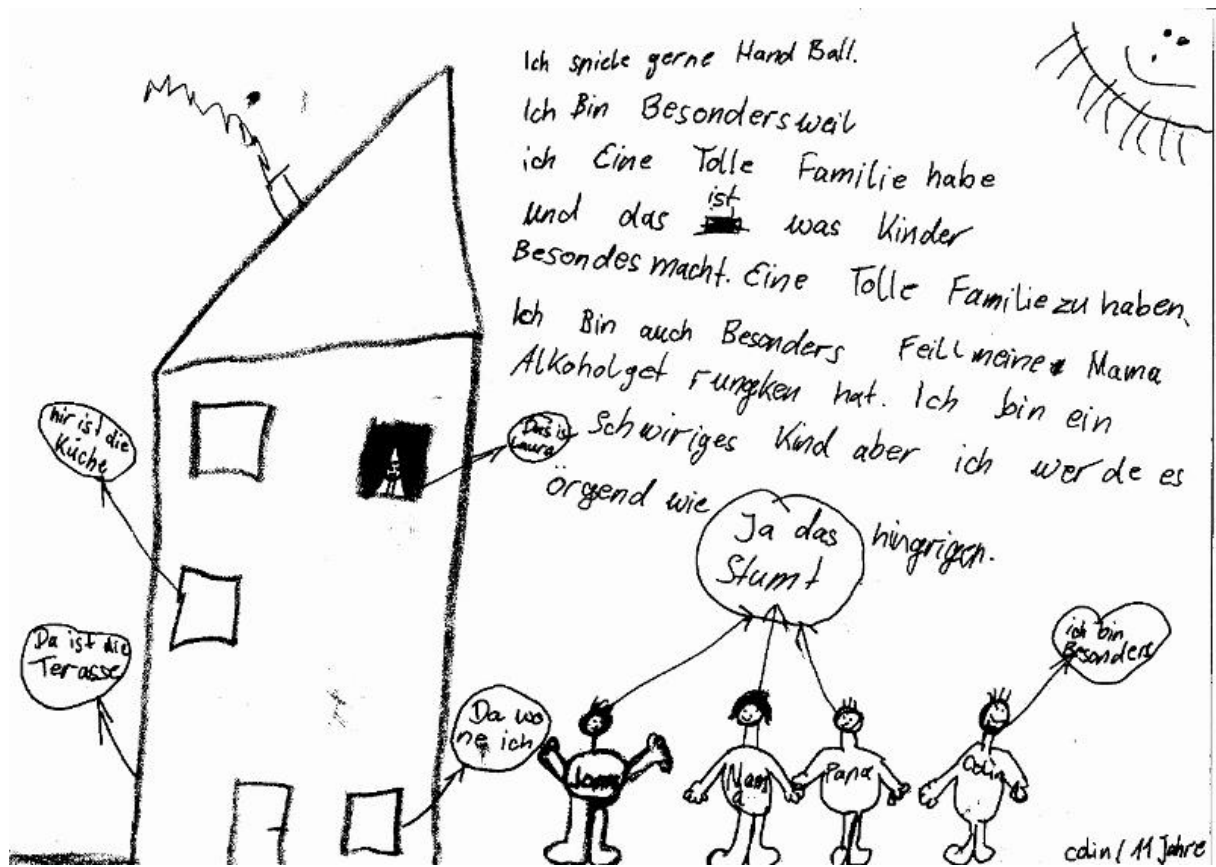 Ich spiele gerne Hand Ball.
Ich Bin Besonders weil
ich Eine Tolle Familie habe
und das ist was Kinder
Besondes macht. Eine Tolle Familie zu haben.
Ich Bin auch Besonders Feill meine Mama
Alkohol get rungken hat. Ich bin ein
Schwiriges Kind aber ich werde es
örgend wie hingrigen.
Ja das
Stumt
hir ist die
Küche
Das is
Laura
Da ist die
Terasse
Da wo
ne ich
ich bin
Besonders
Mam
a
Papa
Colin
colin / 11 Jahre